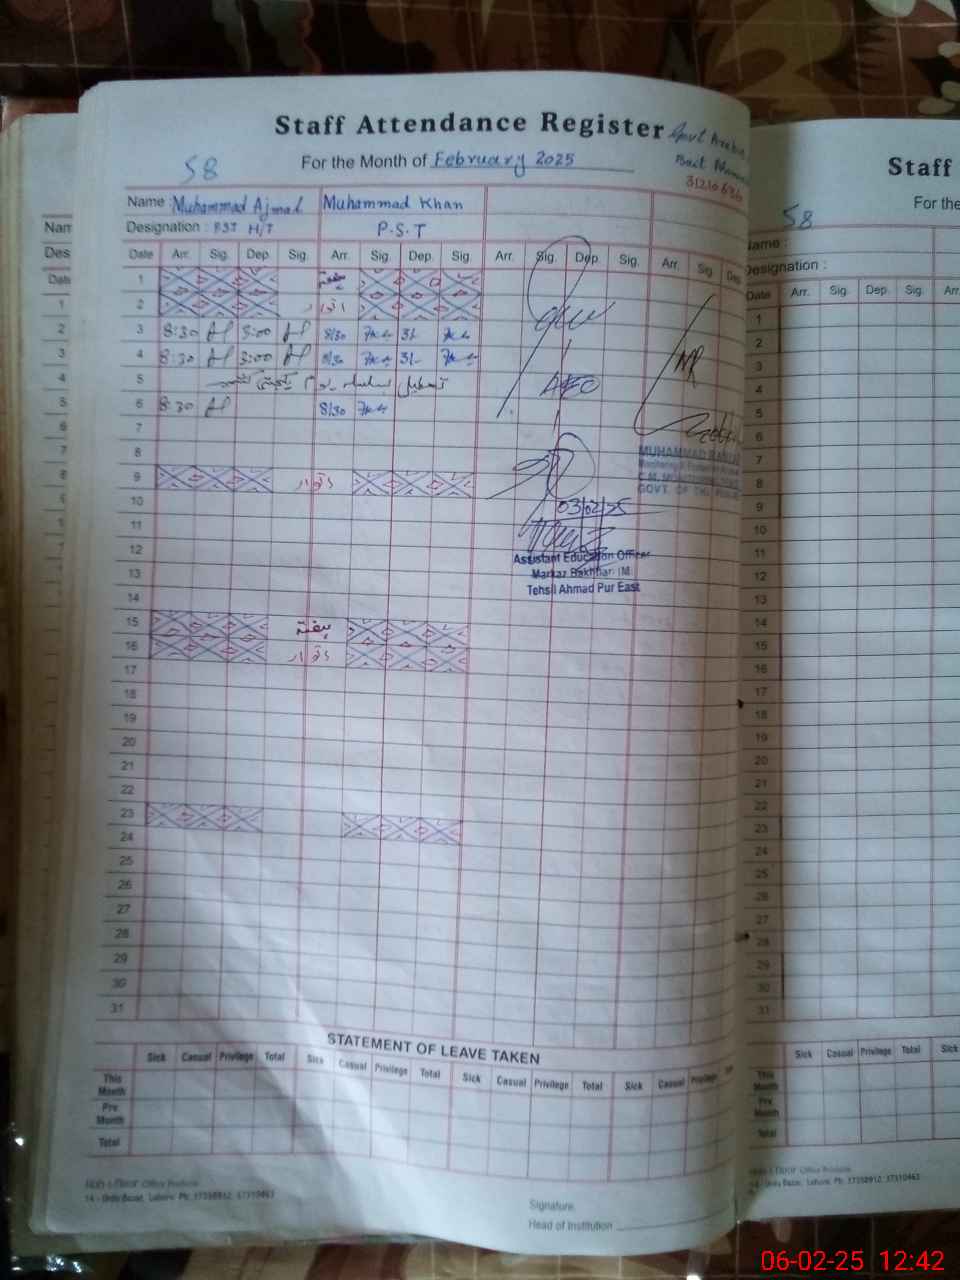 Staff Attendance Register
58
For the Month of February 2025
Name : Muhammad Ajmal Muhammad Khan
Designation : PST H/T P.S.T
Date Arr. Sig. Dep. Sig. Arr. Sig. Dep. Sig. Arr. Sig. Dep. Sig. Arr. Sig. Dep
1 ہفتہ
2 اتوار
3 8:30 3:00 8/30 3/-
4 8:30 3:00 8/30 3/-
5 تعطیل بسلسلہ یوم یکجہتی کشمیر
6 8:30 8/30
7
8
9 اتوار
10
11
12
13
14
15 ہفتہ
16 اتوار
17
18
19
20
21
22
23
24
25
26
27
28
29
30
31
AEO
MUHAMMAD
GOVT. OF THE
03/02/25
Assistant Education Officer
Markaz Bakhtiari M
Tehsil Ahmad Pur East
STATEMENT OF LEAVE TAKEN
Sick Casual Privilege Total Sick Casual Privilege Total Sick Casual Privilege Total Sick Casual Privilege
This Month
Pre Month
Total
Office Products
14 - Urdu Bazar, Lahore. Ph: 37358912, 37310463
Signature
Head of Institution
Staff
58
For the
Name :
Designation :
Date Arr. Sig. Dep. Sig. Arr
1
2
3
4
5
6
7
8
9
10
11
12
13
14
15
16
17
18
19
20
21
22
23
24
25
26
27
28
29
30
31
Sick Casual Privilege Total Sick
This Month
Pre Month
Total
Office Products
14 - Urdu Bazar, Lahore. Ph: 37358912, 37310463
06-02-25 12:42